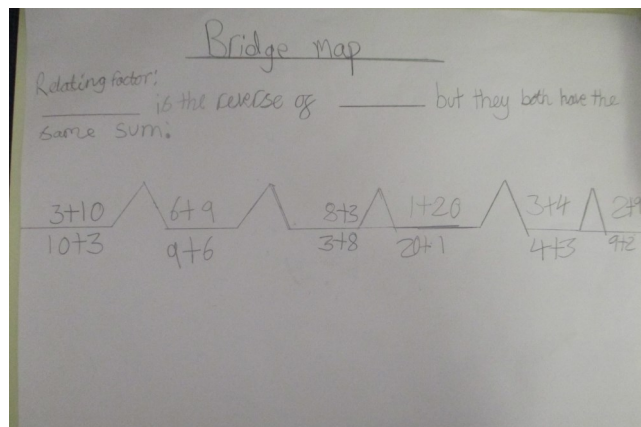 Bridge map
Relating factor:
______ is the reverse of ______ but they both have the
same sum:
3+10 6+9 8+3 1+20 3+4 2+9
10+3 9+6 3+8 20+1 4+3 9+2